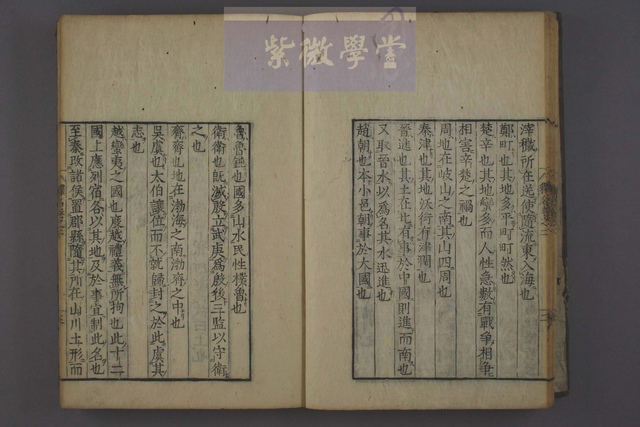 紫微學堂
滓穢所在𨓏使隨流東入海也
鄭町也其地多平町町然也
楚辛也其地蠻多而人性急數有戰爭相爭
相害辛楚之禍也
周地在岐山之南其山四周也
秦津也其地沃衍有津潤也
晉進也其土在北有事於中國則進而南也
又取晉水以爲名其水迅進也
趙朝也本小邑朝事於大國也
魯魯鈍也國多山水民性樸魯也
衛衛也既滅殷立武庚爲殷後三監以守衛
之也
齊齊也地在渤海之南勃齊之中也
吳虞也太伯讓位而不就歸封之於此虞其
志也
越蠻夷之國也度越禮義無所拘也此十二
國上應列宿各以其地及於事宜制此名也
至秦改諸侯置郡縣隨其所在山川土形而